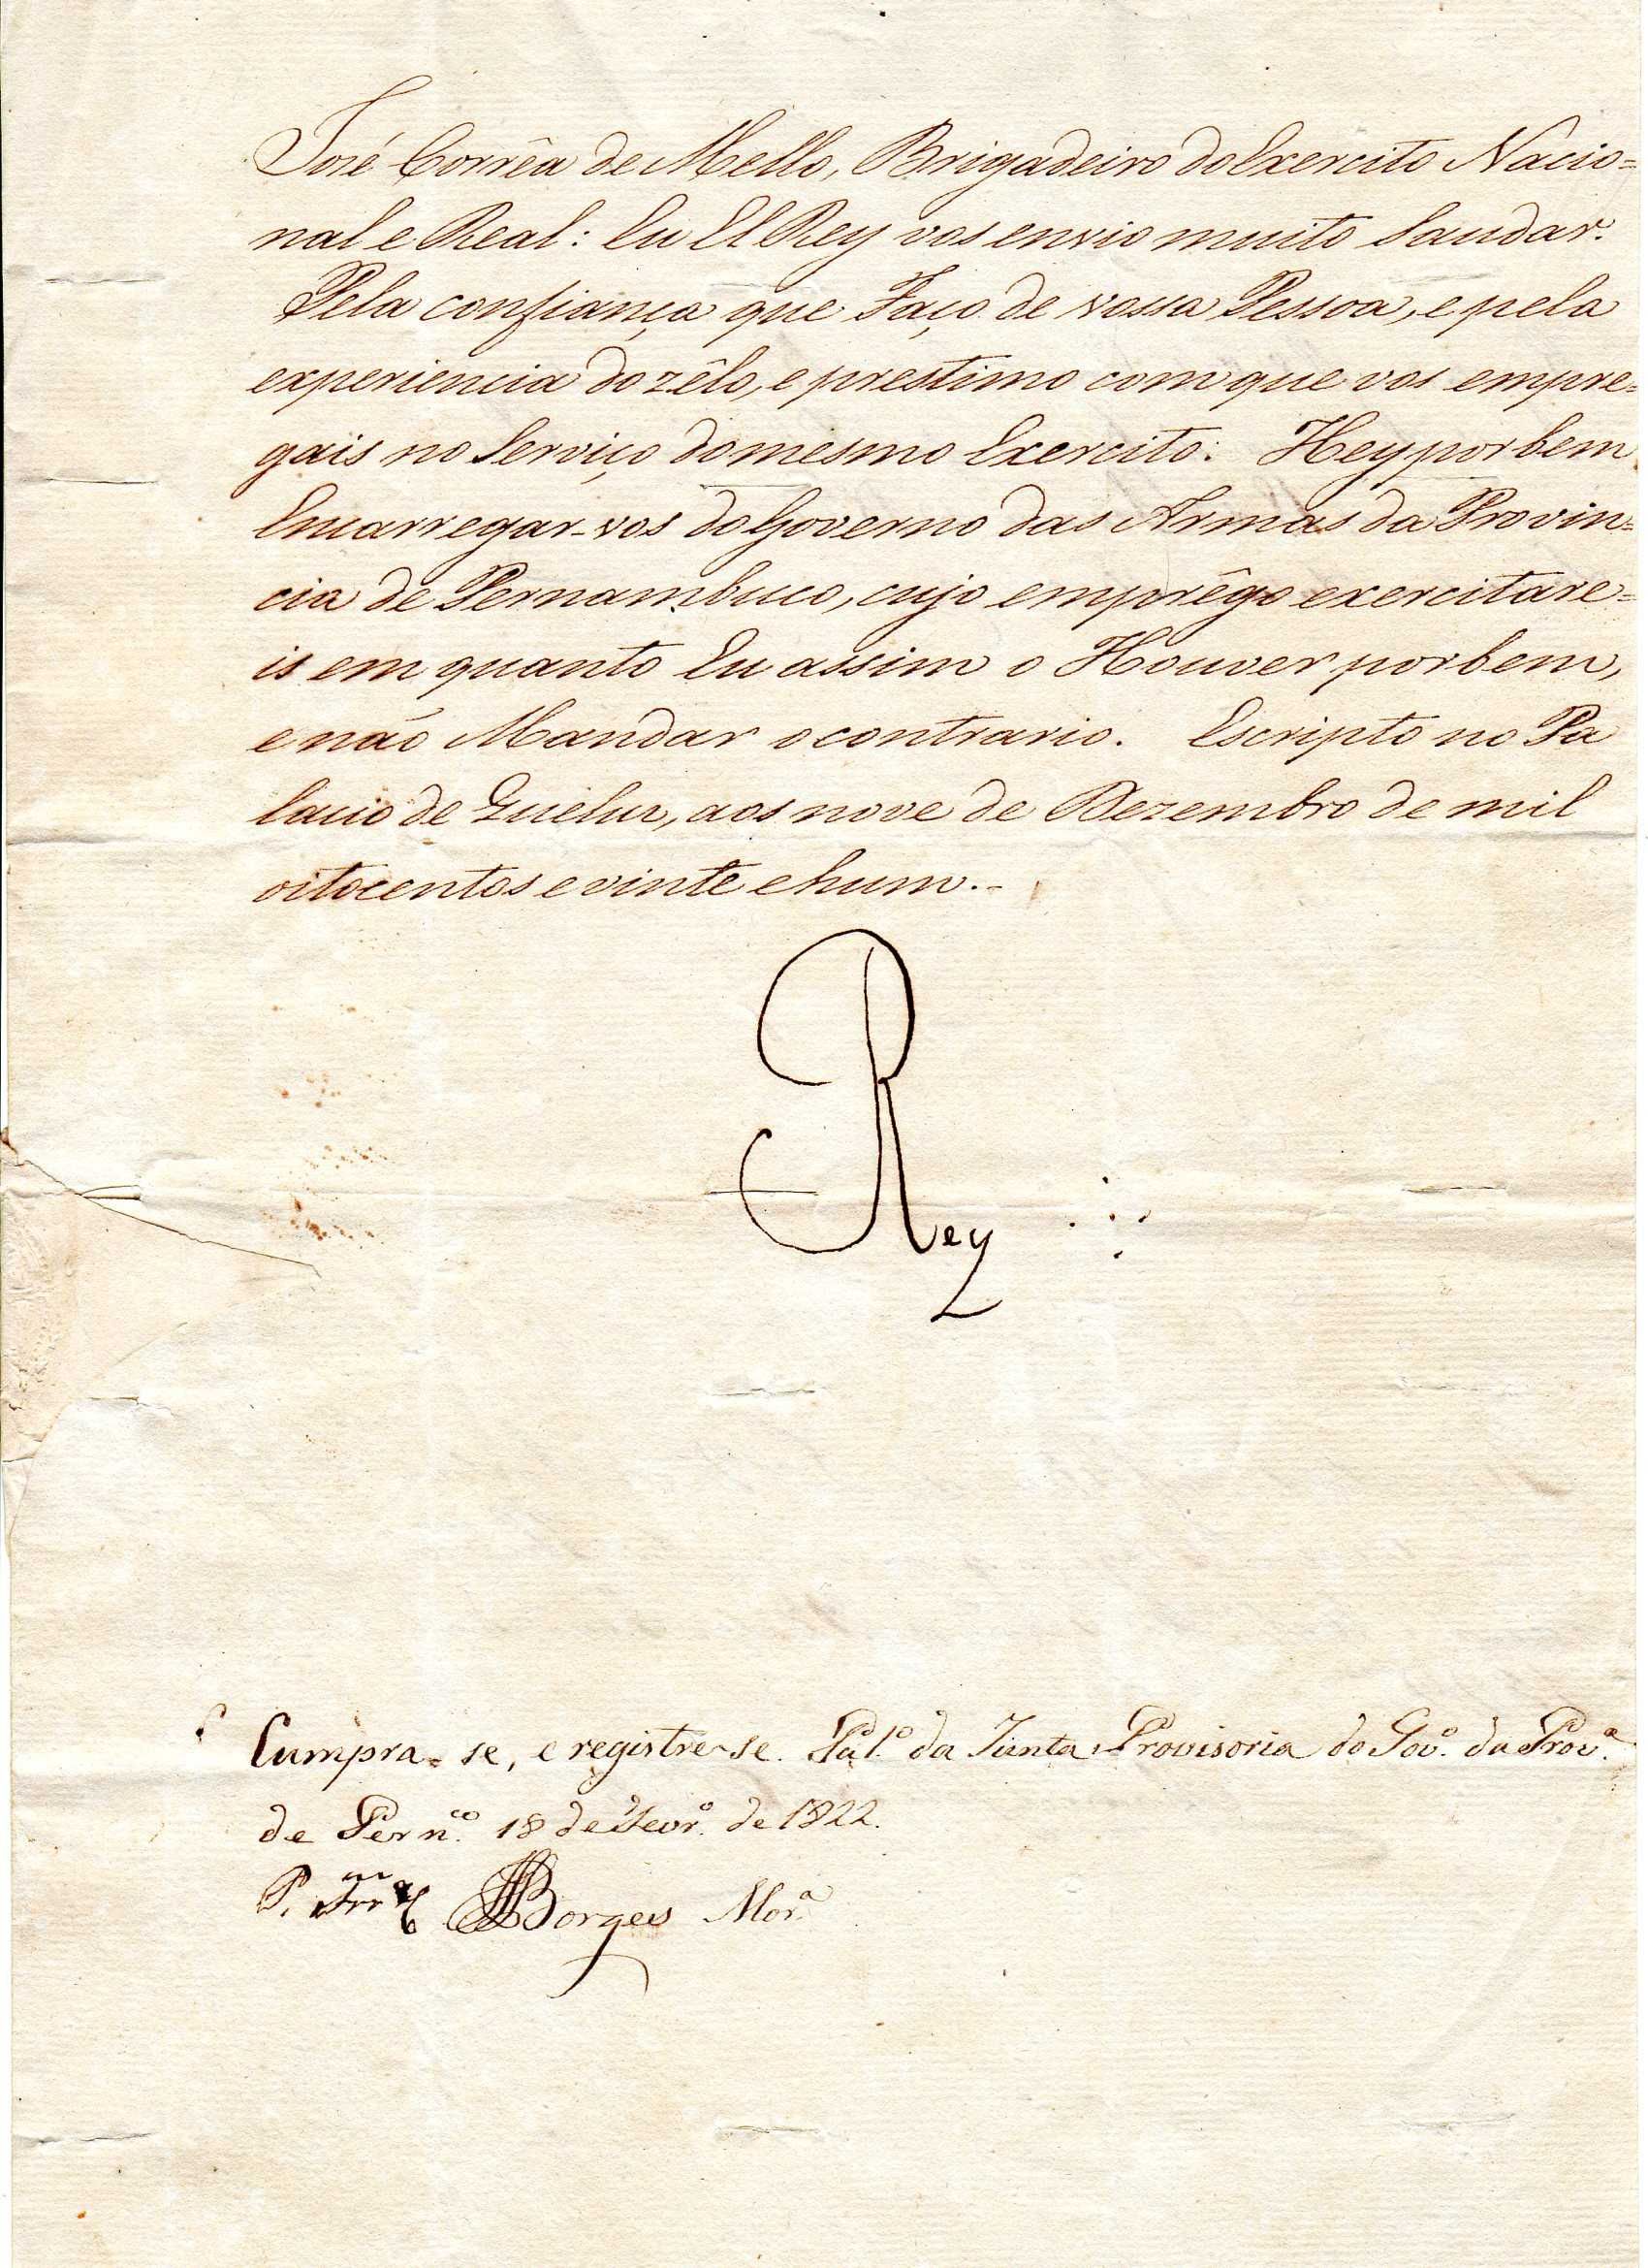 José Corrêa de Mello, Brigadeiro do Exercito Nacio=
nal e Real: Eu El Rey vos envio muito Saudar.
Pela confiança que Faço de vossa Pessoa, e pela
experiencia do zêlo, e prestimo com que vos empre=
gais no Serviço do mesmo Exercito: Hey por bem
Encarregar-vos do Governo das Armas da Provin=
cia de Pernambuco, cujo emprêgo exercitare=
is em quanto Eu assim o Houver por bem,
e não Mandar o contrario. Escripto no Pa
lacio de Queluz, aos nove de Dezembro de mil
oitocentos e vinte e hum.
Rey
Cumpra-se, e registre-se. Palº da Junta Provisoria do Govº. da Provª.
de Pernco. 18 de Fevrº. de 1822.
P. Borges Morª